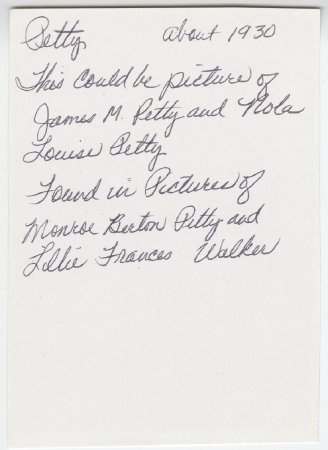 Petty About 1930
This could be picture of
James M. Petty and Nola
Louise Petty
Found in Pictures of
Monroe Burton Petty and
Lillie Frances Walker